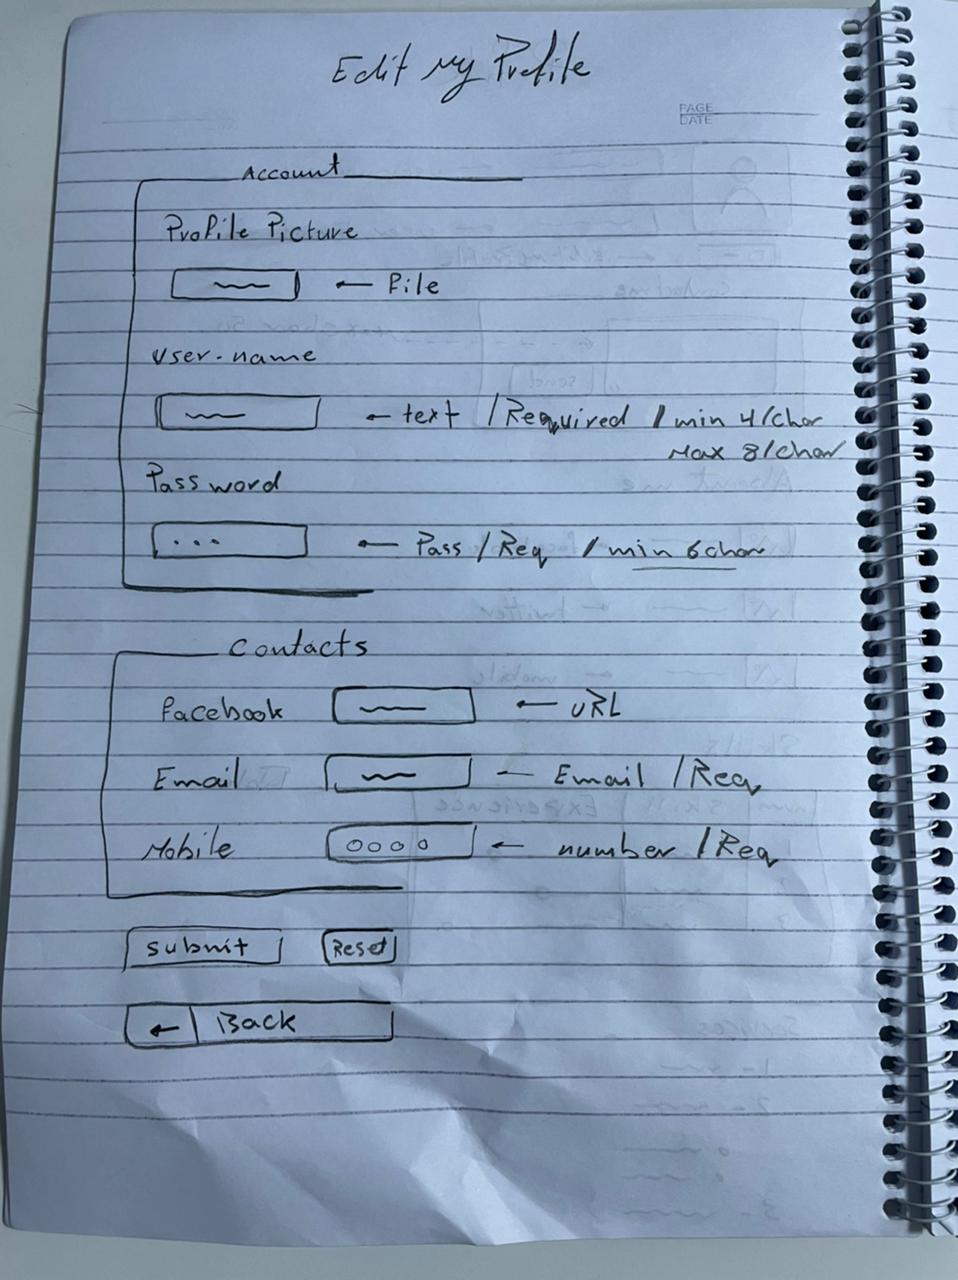 Edit My Profile
PAGE
DATE
Account
Profile Picture
← File
User-name
← text / Required / min 4/char
Max 8/char
Password
... ← Pass / Req / min 6 char
Contacts
Facebook ← URL
Email ← Email / Req
Mobile oooo ← number / Req
submit Reset
← Back